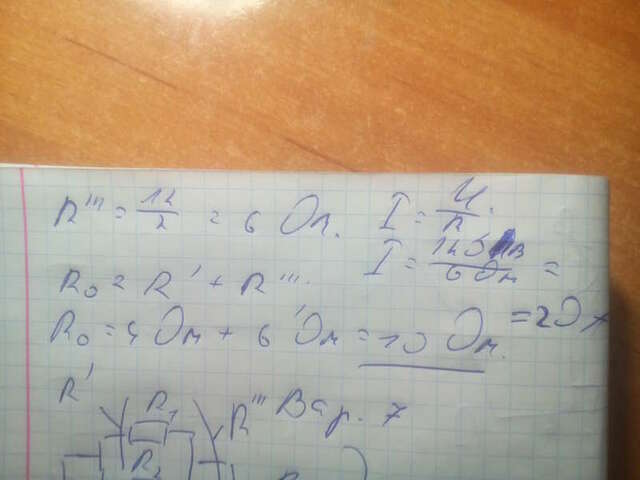 R''' = 12/2 = 6 Ом. I = U/R.
R₀ = R' + R'''. I = 120 В/6 Ом =
R₀ = 4 Ом + 6 Ом = 10 Ом. = 20
R'
R₁ R''' Вар. 7
R₂